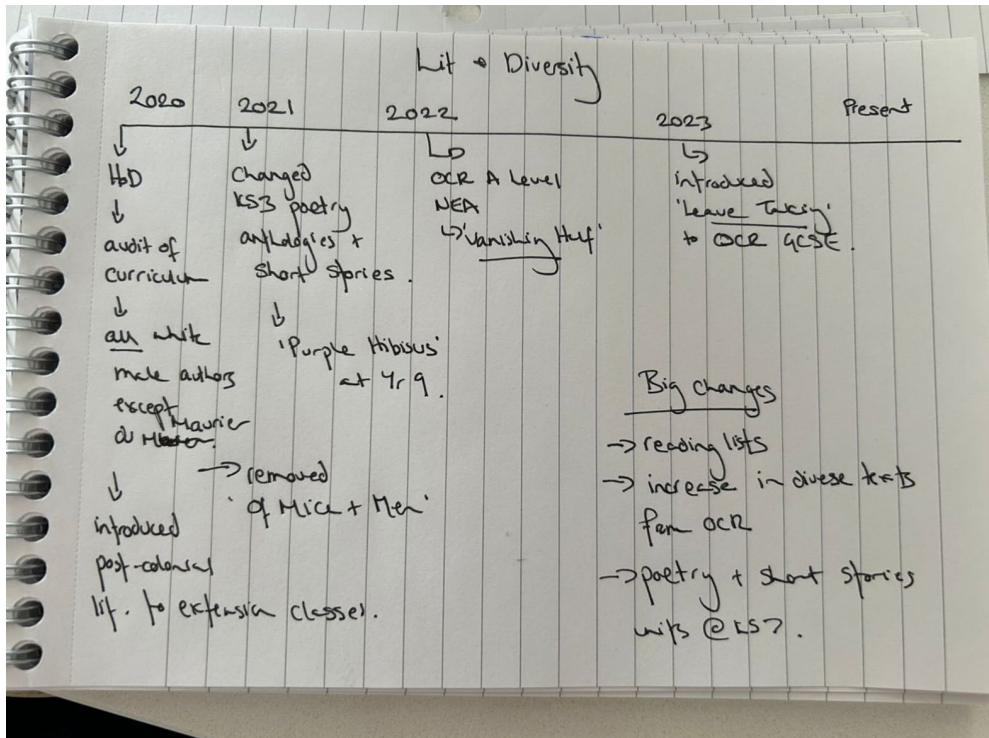 Lit + Diversity
2020
HoD
audit of
curriculum
all white
male authors
except
du Maurier
introduced
post-colonial
lit. to extension classes.
→ removed
'Of Mice + Men'
2021
Changed
KS3 poetry
anthologies +
short stories.
'Purple Hibisus'
at Yr 9.
2022
OCR A Level
NEA
'Vanishing Half'
2023
introduced
'Leave Taking'
to OCR GCSE.
Present
Big changes
→ reading lists
→ increase in divese texts
from OCR
→ poetry + short stories
units @ KS3.